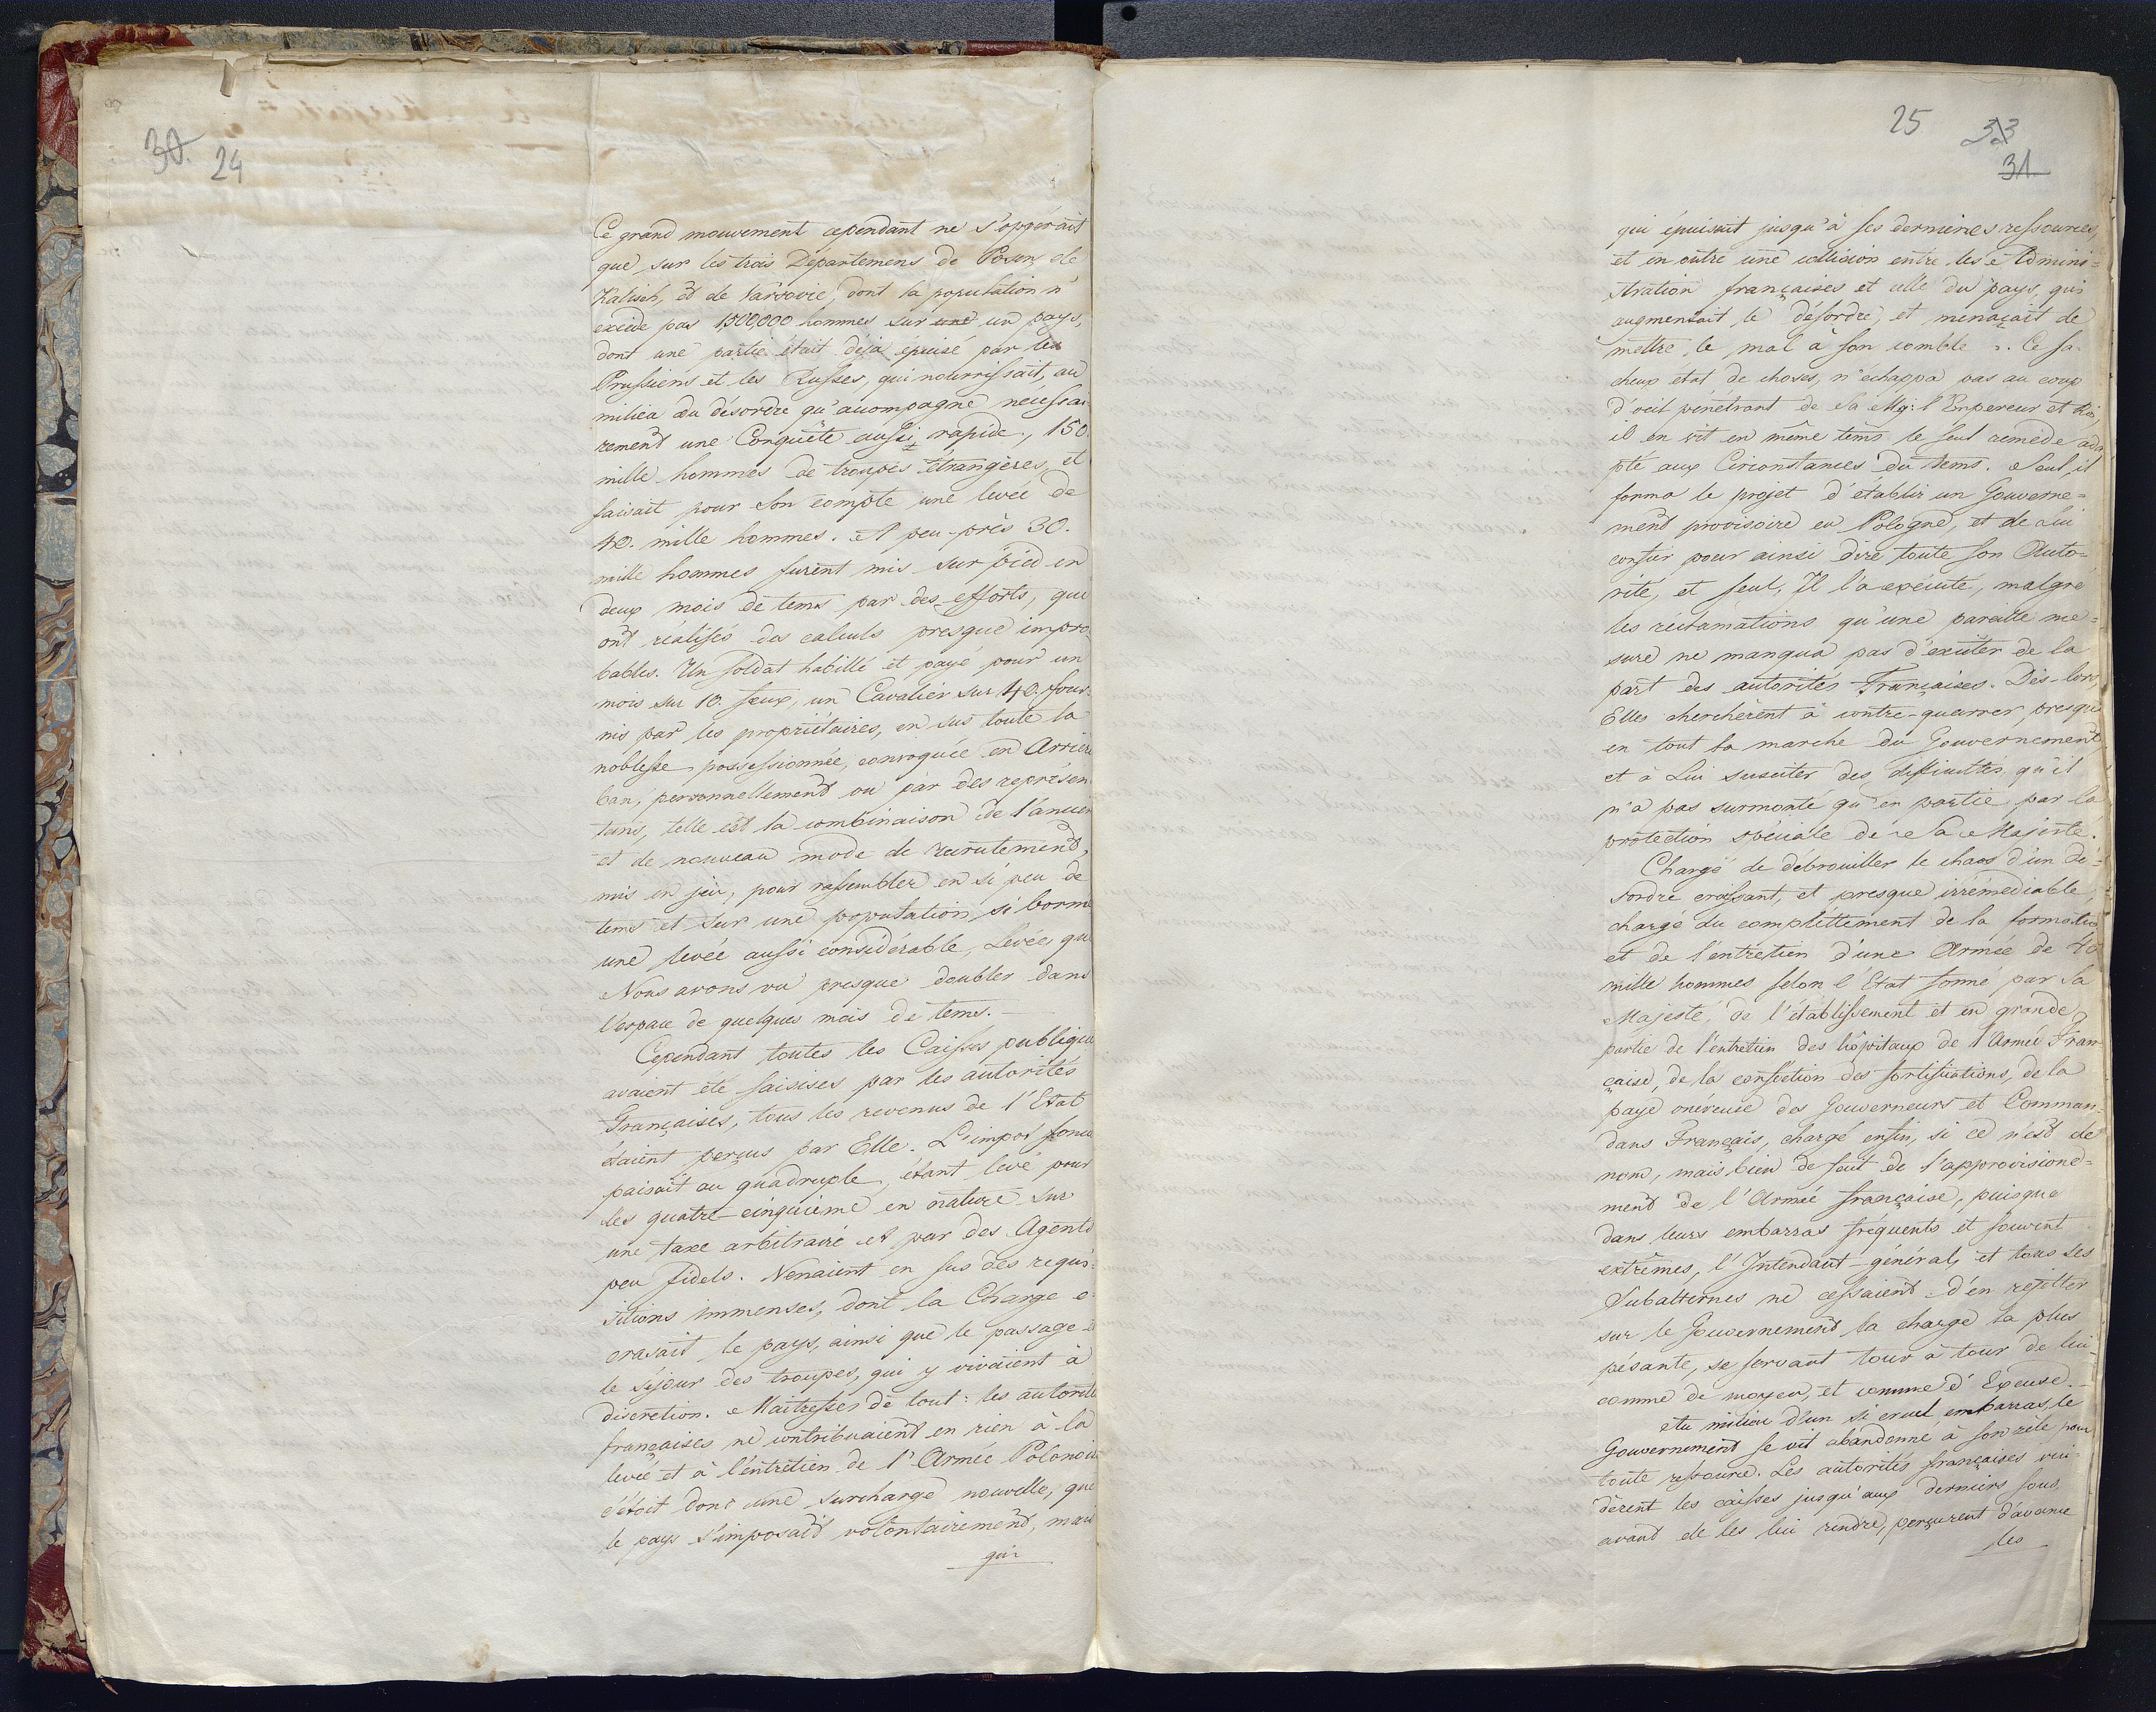 30. 24
Ce grand mouvement cependant ne s'opérait
que sur les trois Departemens de Posen, de
Kalisch, et de Varsovie, dont la population n'
excède pas 1500,000 hommes sur une un pays,
dont une partie était déja épuisé par les
Prussiens et les Russes, qui nourrissait, au
milieu du désordre qu'accompagne nécessai-
rement une Conquête aussi rapide, 150
mille hommes de troupes étrangères, et
faisait pour son compte une levée de
40. mille hommes. A peu-près 30.
mille hommes furent mis sur pied en
deux mois de tems par des efforts, qui
ont réalisés des calculs presque impro-
bables. Un soldat habillé et payé pour un
mois sur 10. feux, un Cavalier sur 40. four-
nis par les propriétaires, en sus toute la
noblesse possessionnée, convoquée en Arrière
ban, personnellement ou par des représen
tans, telle est la combinaison de l'ancien
et de nouveau mode de recrutement,
mis en jeu, pour rassembler en si peu de
tems et sur une population si borne
une levée aussi considérable, Levée, que
Nous avons vu presque doubler dans
l'espace de quelques mois de tems.
Cependant toutes les Caisses publique
avaient été saisises par les autorités
Françaises, tous les revenus de l'Etat
étaient perçus par Elle. L'impot fonci
paisait au quadruple, étant levé pour
les quatre-cinquième en nature sur
une taxe arbitraire et par des Agents
peu fidels. Venaient en sus des requi-
sitions immenses, dont la Charge e-
crasait le pays, ainsi que le passage et
le séjour des troupes, qui y vivaient à
discretion. Maitresses de tout: les autorité
françaises ne contribuaient en rien à la
levée et à l'entretien de l'Armée Polonoise
c'étoit donc une surcharge nouvelle, que
le pays s'imposait volontairement, mais
qui
25 33
31
qui épuisait jusqu'à ses dernières ressources,
et en outre une collision entre les Admini-
stration françaises et celle du pays, qui
augmentait le désordre, et menaçait de
mettre le mal à son comble. Ce fa-
cheux etat de choses, n'echappa pas au coup
d'oeil pénétrant de Sa Mg: l'Empereur et Roi,
il en vit en même tems le seul remède ada
pté aux Circonstances du tems. Seul, il
forma le projet d'établir un Gouverne-
ment provisoire en Pologne, et de Lui
confier pour ainsi dire toute son Auto-
rité, et seul, Il l'a exécuté, malgré
les réclamations qu'une pareille me-
sure ne manqua pas d'exciter de la
part des autorités Françaises. Dès-lors,
Elles cherchèrent à contre-quarrer presque
en tout la marche du Gouvernement
et à Lui susciter des difficultés, qu'il
n'a pas surmonté qu'en partie par la
protection spéciale de Sa Majesté.
Chargé de débrouiller le chaos d'un dé-
sordre croissant, et presque irrémediable,
chargé du complettement de la formation
et de l'entretien d'une Armée de 40
mille hommes selon l'Etat formé par Sa
Majesté, de l'établissement et en grande
partie de l'entretien des hôpitaux de l'Armée Fran
çaise, de la confection des fortifications, de la
paye onéreuse des Gouverneurs et Comman-
dans Français, chargé enfin, si ce n'est de
nom, mais bien de fait de l'approvisione-
ment de l'Armée française, puisque
dans leurs embarras fréquents et souvent
extrêmes, l'Intendant-général, et tous ses
Subalternes ne cessaient d'en rejetter
sur le Gouvernement la charge la plus
pésante, se servant tour à tour de lui
comme de moyen, et comme d'Excuse.
Au milieu d'un si cruel embarras, le
Gouvernement se vit abandonné à son zèle pour
toute ressource. Les autorités françaises vui-
dèrent les caisses jusqu'aux derniers sous,
avant de les lui rendre, perçurent d'avance
les